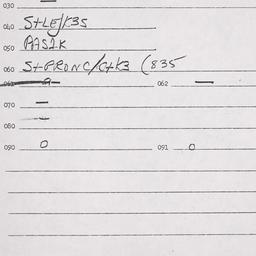 030 —
040 S+LE/K35
050 PAS1K
060 S+PRONC/C+K3 (835
062 —
070 —
080 —
090 0 091 0